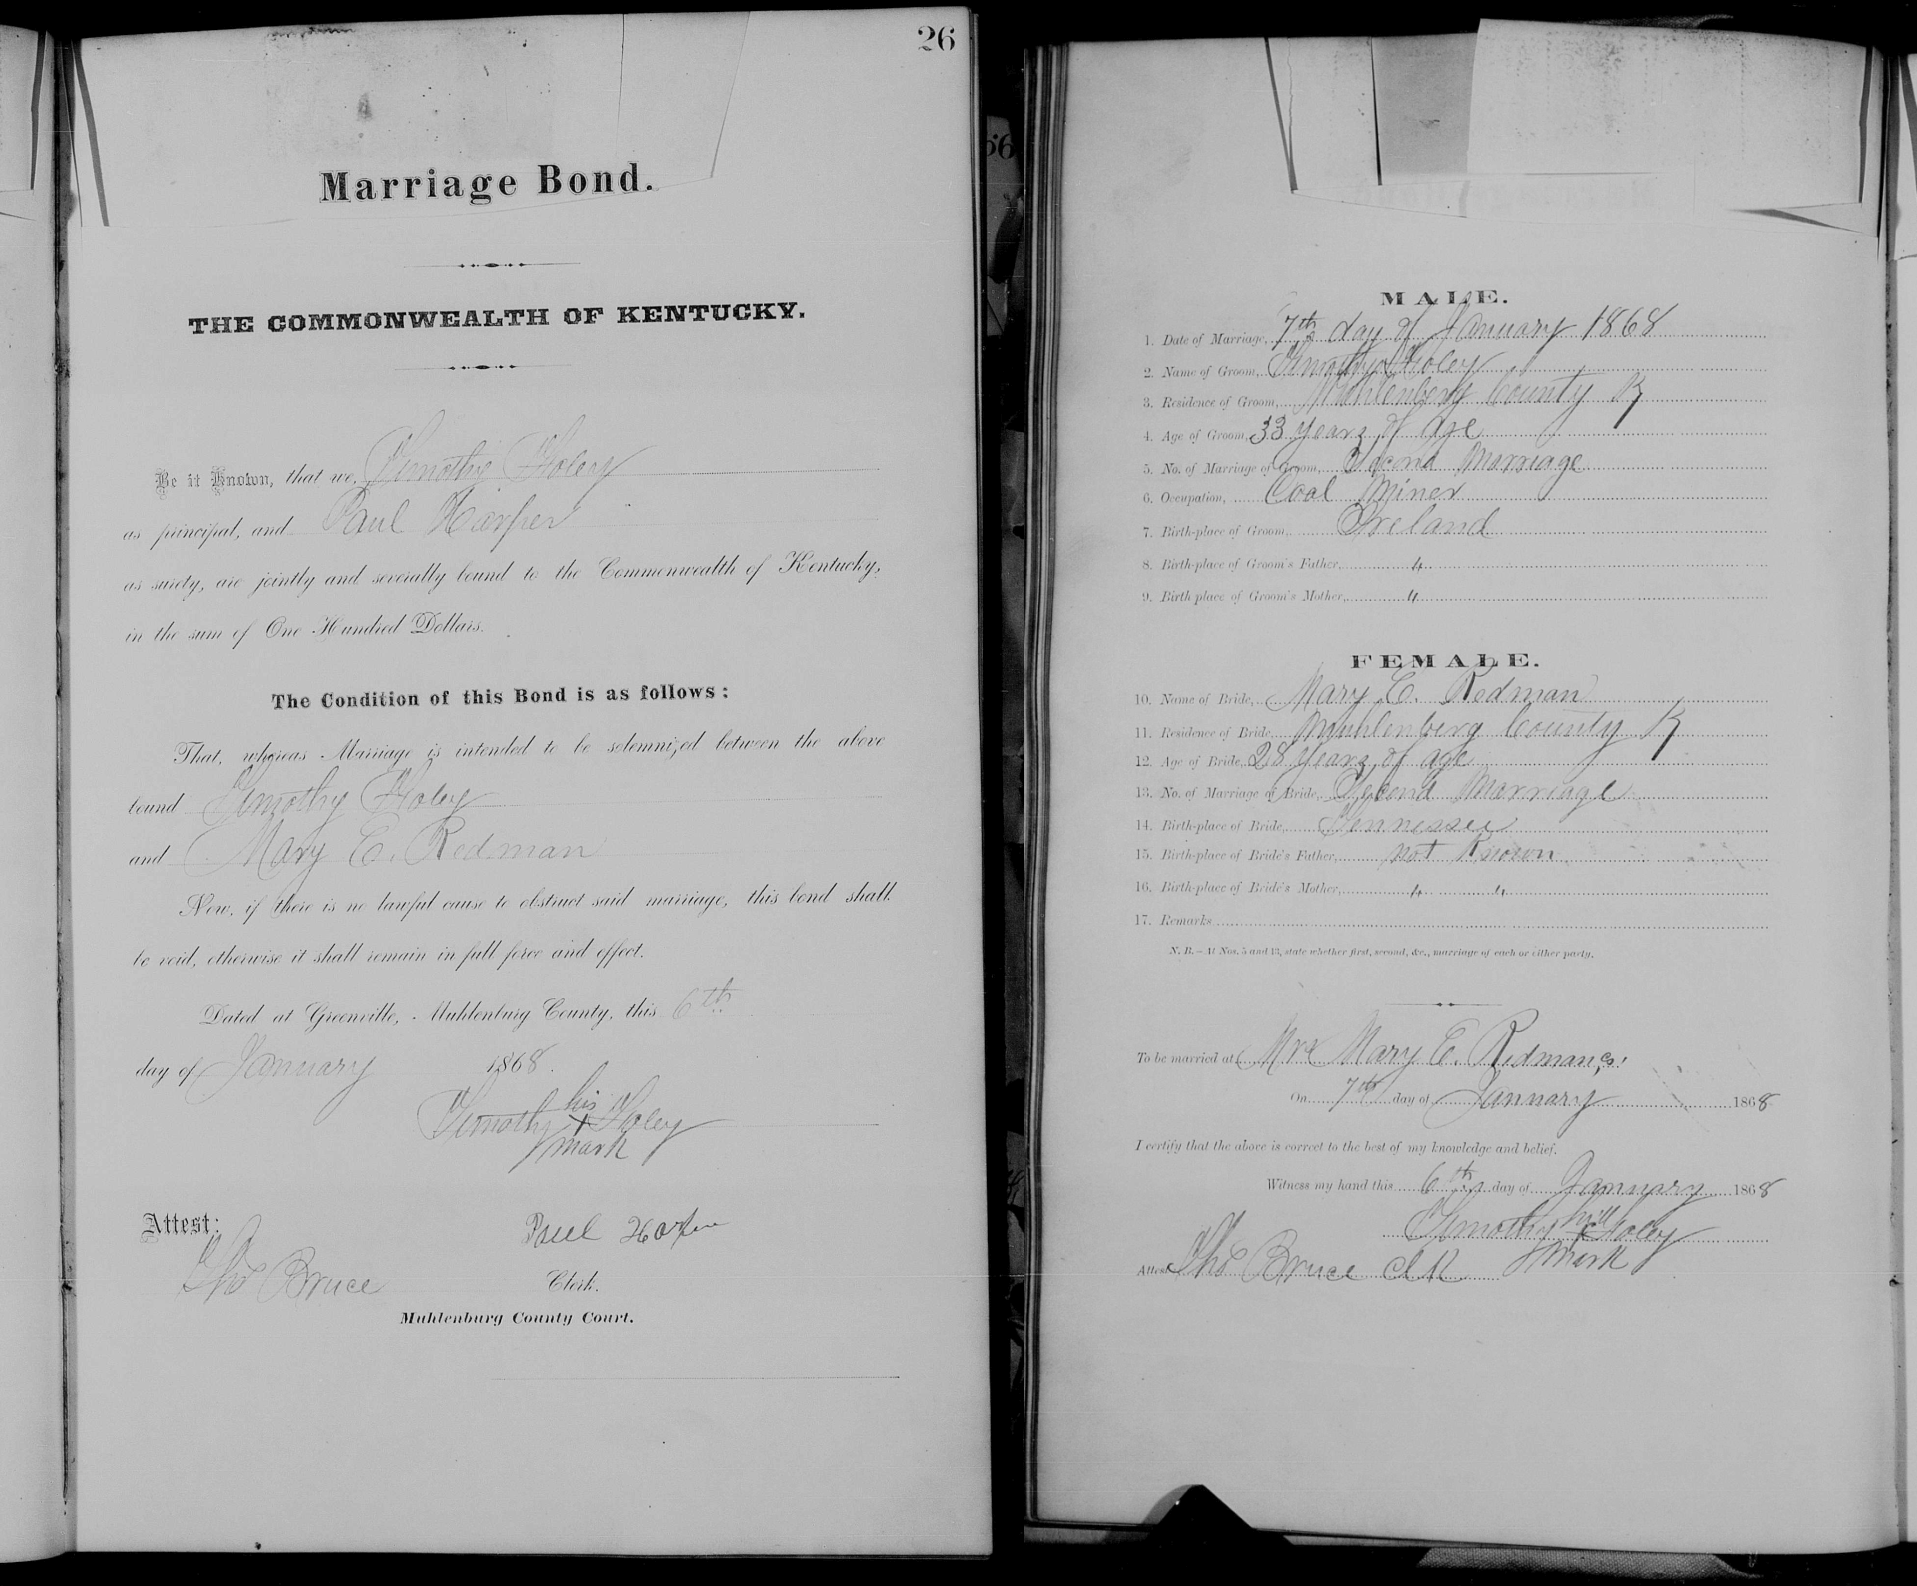 26
Marriage Bond.
THE COMMONWEALTH OF KENTUCKY.
Be it Known, that we, Timothy Foley
as principal, and Paul Harper
as surety, are jointly and severally bound to the Commonwealth of Kentucky,
in the sum of One Hundred Dollars.
The Condition of this Bond is as follows:
That, whereas Marriage is intended to be solemnized between the above
bound Timothy Foley
and Mary E. Redman
Now, if there is no lawful cause to obstruct said marriage, this bond shall
be void, otherwise it shall remain in full force and effect.
Dated at Greenville, Muhlenburg County, this 6th
day of January 1868.
his
Timothy x Foley
mark
Attest:
Paul Harper
Tho Bruce Clerk.
Muhlenburg County Court.
56
MALE.
1. Date of Marriage, 7th day of January 1868
2. Name of Groom, Timothy Foley
3. Residence of Groom, Muhlenberg County Ky
4. Age of Groom, 33 years of age
5. No. of Marriage of Groom, Second Marriage
6. Occupation, Coal Miner
7. Birth-place of Groom, Ireland
8. Birth-place of Groom's Father, "
9. Birth-place of Groom's Mother, "
FEMALE.
10. Name of Bride, Mary E. Redman
11. Residence of Bride, Muhlenberg County Ky
12. Age of Bride, 28 years of age
13. No. of Marriage of Bride, Second Marriage
14. Birth-place of Bride, Tennessee
15. Birth-place of Bride's Father, not Known
16. Birth-place of Bride's Mother, " "
17. Remarks
N. B.—At Nos. 5 and 13, state whether first, second, &c., marriage of each or either party.
To be married at Mrs Mary E. Redman,s.
On 7th day of January 1868
I certify that the above is correct to the best of my knowledge and belief.
Witness my hand this 6th day of January 1868
his
Timothy x Foley
mark
Attest Tho Bruce clk